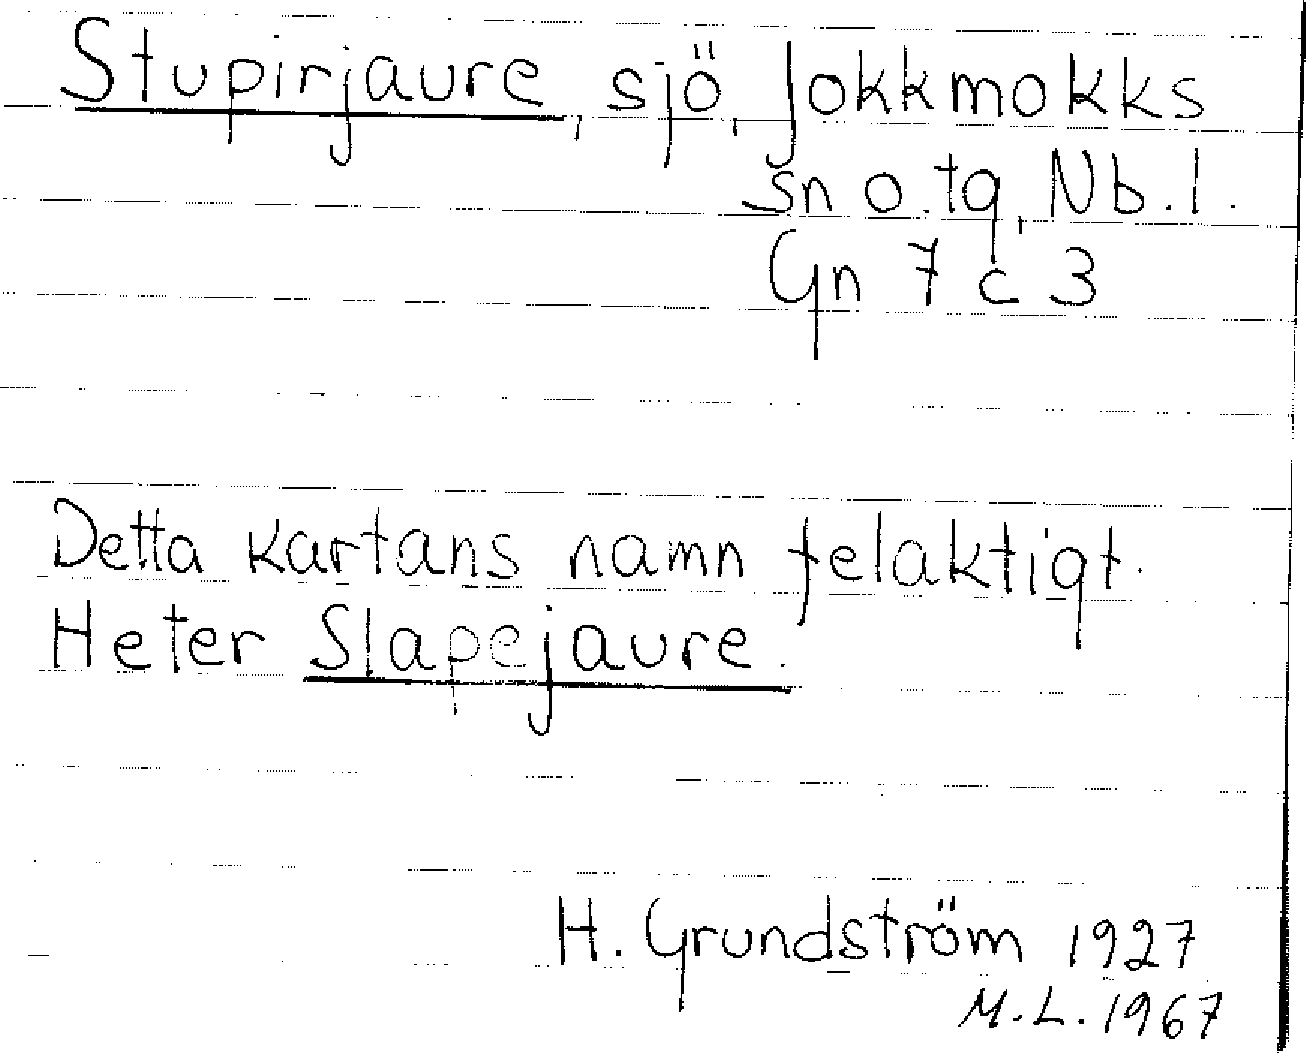 Stupirjaure, sjö, Jokkmokks
sn o. tg, Nb. l.
Gn 7 c 3
Detta kartans namn felaktigt.
Heter Slapejaure.
H. Grundström 1927
M.L. 1967